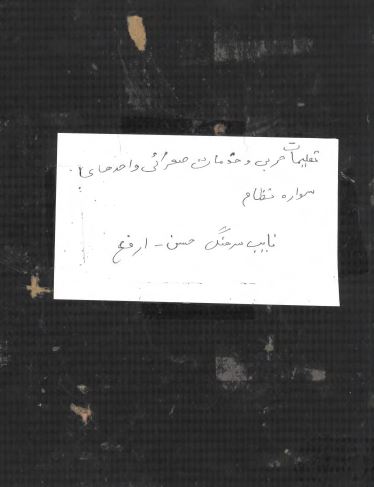 تعلیمات حربی و خدمات صحرائی واحدهای
سواره نظام
نایب سرهنگ حسن - ارفع